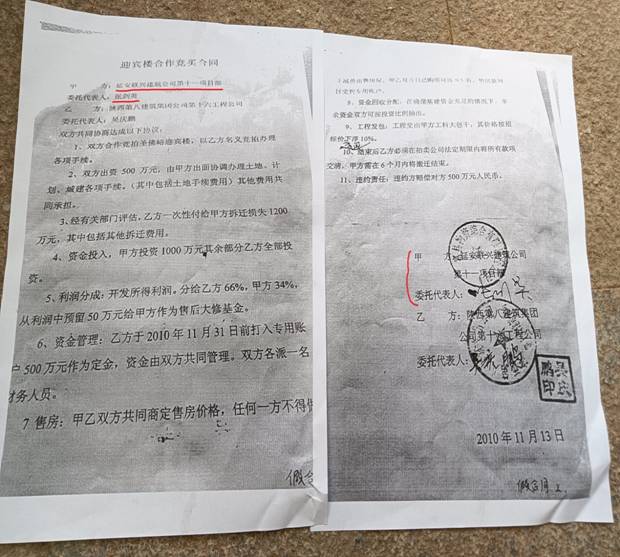 迎宾楼合作竞买合同
甲 方：延安联兴建筑公司第十一项目部
委托代表人：张剑英
乙 方：陕西第八建筑集团公司第十六工程公司
委托代表人：吴庆鹏
双方共同协商达成以下协议：
1、双方合作竞拍圣佛峪迎宾楼，以乙方名义竞拍办理
各项手续。
2、双方出资 500 万元，由甲方出面协调办理土地、计
划、城建各项手续。（其中包括土地手续费用）其他费用共
同承担。
3、经有关部门评估，乙方一次性付给甲方拆迁损失 1200
万元，其中包括其他拆迁费用。
4、资金投入，甲方投资 1000 万元其余部分乙方全部投
资。
5、利润分成：开发所得利润。分给乙方 66%，甲方 34%，
从利润中预留 50 万元给甲方作为售后大修基金。
6、资金管理：乙方于 2010 年 11 月 31 日前打入专用账
户 500 万元作为定金，资金由双方共同管理。双方各派一名
财务人员。
7 售房：甲乙双方共同商定售房价格，任何一方不得
假合
8、资金回收分配：在确保基建资金充足的情况下，多
余资金双方可按投资比例抽出。
9、工程发包：工程交由甲方工料大包干，其价格按招
标价下浮 10%。
10、结束后乙方必须在拍卖公司法定期限内将所有款项
交清，甲方需在 6 个月内将搬迁结束。
11、违约责任：违约方赔偿对方 500 万元人民币。
甲 方：延安联兴建筑公司
第十一项目部
委托代表人：
乙 方：陕西第八建筑集团
公司第十六工程公司
委托代表人：吴庆鹏
吴庆鹏印
2010 年 11 月 13 日
假合同